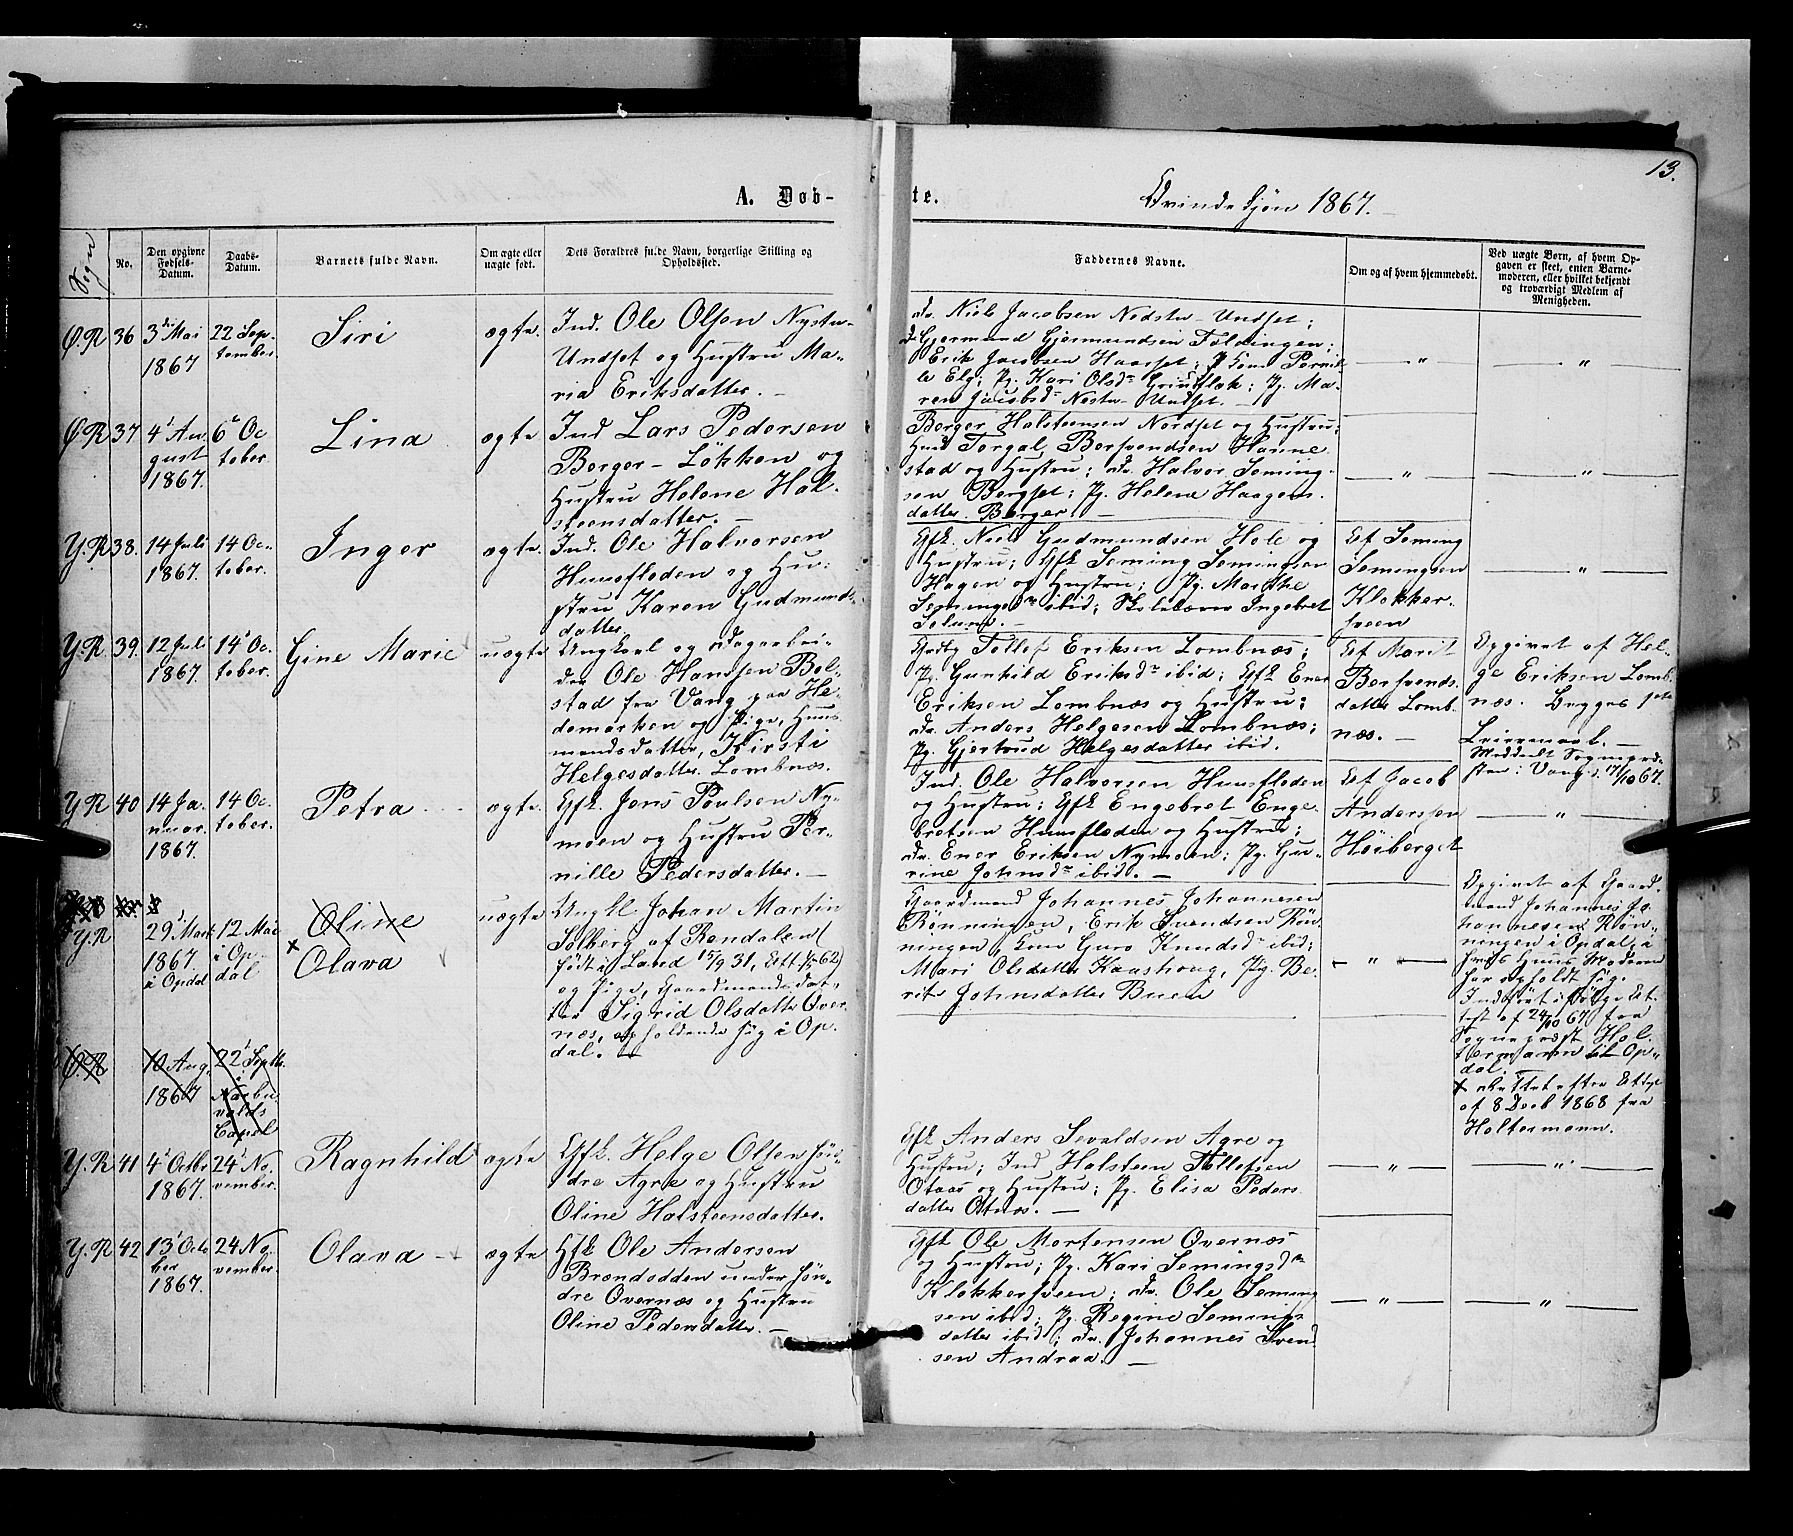 13.
A. Døb-
te.
Qvindekjøn 1867.
Sogn
No.
Den opgivne
Fødsels-
Datum.
Daabs-
Datum.
Barnets fulde Navn.
Om ægte eller
uægte født.
Dets Forældres fulde Navn, borgerlige Stilling og
Opholdssted.
Faddernes Navne.
Om og af hvem hjemmedøbt.
Ved uægte Børn, af hvem Op-
gaven er skeet, enten Barne-
moderen, eller hvilket bekjendt
og troværdigt Medlem af
Menigheden.
Ø.R
36
3 Mai
1867
22 Sep-
tember
Siri
ægte.
Ind. Ole Olsen Nystu-
Undset og Hustru Ma-
ria Eriksdatter. —
Niels Jacobsen Nedstu-Undset;
Gjermund Gjermundsen Foldingen;
Erik Jacobsen Haarset; Kone Pernil-
le Elg; Pg. Kari Olsd. Grindflæk; Pg. Ma-
ren Jacobsd. Nestu-Undset. —
— " —
— " —
Ø.R
37
4 Au-
gust
1867.
6 Oc
tober.
Lina
ægte
Ind Lars Pedersen
Berger-Løkken og
Hustru Helene Hal-
steensdatter. —
Berger Halsteensen Nordset og Hustru;
Torgal Bersvendsen Hanne
stad og Hustru; Halvor Seming-
sen Bergset; Pg. Helene Haagens
datter Berger. —
— " —
— " —
Y.R
38.
14 Juli
1867.
14 Oc-
tober.
Inger
ægte.
Ind. Ole Halvorsen
Huusfloden og Hu-
stru Karen Gudmunds-
datter
Gfk. Niels Gudmundsen Hole og
Hustru; Gfk Seming Semingsen
Hagen og Hustru; Pg. Marthe
Semingsd. ibid; Skolelærer Ingebret
Solum. —
Af Seming
Semingsen
Klokker-
sveen
— " —
Y.R.
39.
12 Juli
1867.
14 Oc
tober.
Gine Marie
uægte
Ungkarl og Dagarbei-
der Ole Hansen Bol-
stad fra Vang paa He-
demarken og Pige, Huus-
mandsdatter, Kirsti
Helgesdatter Lombnæs.
Tollef Eriksen Lombnæs;
Pg. Gunhild Eriksd. ibid; Gfk Ener
Eriksen Lombnæs og Hustru;
Anders Helgesen Lombnæs;
Pg. Gjertrud Helgesdatter ibid.
Af Marit
Bersvends
datter Lomb
næs. —
Opgivet af Hel-
ge Eriksen Lomb-
næs. Begges 1ste
Leiermaal. —
Meddelt Sognepræ-
sten i Vang 17/10 67.
Y R
40
14 Ja-
nuar.
1867.
14 Oc
tober.
Petra
ægte.
Gfk. Jens Poulsen Ny-
moen og Hustru Per-
nille Pedersdatter. —
Ind. Ole Halvorsen Huusfloden
og Hustru; Gfk Engebret Enge-
bretsen Huusfloden og Hustru;
Ener Eriksen Nymoen; Pg. Gu-
rine Johnsd. ibid. —
Af Jacob
Anderssen
Høiberget
— " —
Y.R
29 Marts
1867.
i Opdal
12 Mai
i Op-
dal
Oline
× Olava
uægte
Ungkl. Johan Martin
Solberg af Rendalen (
født i Land 15/9 31, Att 62)
og Pige, Gaardmandsdat-
ter Sigrid Olsdatter Over-
næs, opholdende sig i Op-
dal. —
Gaardmand Johannes Johannesen
Rønningen, Erik Svendsen Røn-
ningen, Kone Guro Knudsd. ibid;
Mari Olsdatter Kaashoug, Pig. Be-
rit Johnsdatter Buen
— " —
Opgivet af Gaard-
mand Johannes Jo
hannesen Røn-
ningen i Opdal, i
hvis Huus Moderen
har opholdt sig.
Indført ifølge At-
test af 24/10 67 fra
Sognepræst Hol-
termann til Op-
dal. —
× Rettet efter Attest
af 8 Decb 1868 fra
Holtermann.
Ø.R
10 Aug.
1867
22 Septb.
i
valds
Capel
Y.R
41
4 Octbr
1867.
24 No-
vember.
Ragnhild
ægte
Gfk. Helge Olsen Søn-
dre Agre og Hustru
Oline Halsteensdatter.
Gfk Anders Sevaldsen Agre og
Hustru; Ind Halsteen Tollefsen
Otaas og Hustru; Pg. Elisa Peders
datter Otnes. —
— " —
— " —
Y.R
42
13 Octo
ber
1867.
24 No-
vember.
Olava
ægte
Gfk Ole Andersen
Brændodden under Søn-
dre Overnæs og Hustru
Oline Pedersdatter. —
Gfk Ole Mortensen Overnæs
og Hustru; Pg. Kari Semingsd.
Klokkersveen; Ole Seming
sen ibid; Pg. Regine Semings-
datter ibid; Johannes Svend
sen Andraa. —
— " —
— " —